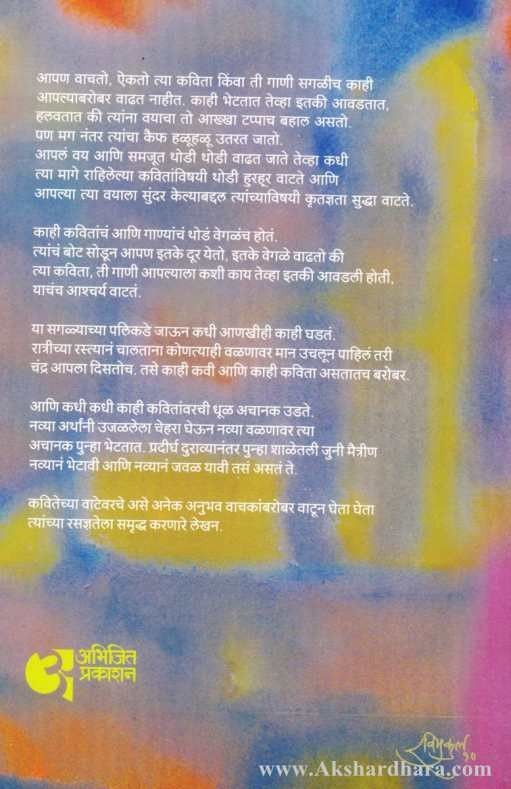 आपण वाचतो, ऐकतो त्या कविता किंवा ती गाणी सगळीच काही
आपल्याबरोबर वाढत नाहीत. काही भेटतात तेव्हा इतकी आवडतात,
हलवतात की त्यांना वयाचा तो आख्खा टप्पाच बहाल असतो.
पण मग नंतर त्यांचा कैफ हळूहळू उतरत जातो.
आपलं वय आणि समजूत थोडी थोडी वाढत जाते तेव्हा कधी
त्या मागे राहिलेल्या कवितांविषयी थोडी हुरहूर वाटते आणि
आपल्या त्या वयाला सुंदर केल्याबद्दल त्यांच्याविषयी कृतज्ञता सुद्धा वाटते.
काही कवितांचं आणि गाण्यांचं थोडं वेगळंच होतं.
त्यांचं बोट सोडून आपण इतके दूर येतो, इतके वेगळे वाढतो की
त्या कविता, ती गाणी आपल्याला कशी काय तेव्हा इतकी आवडली होती,
याचंच आश्चर्य वाटतं.
या सगळ्याच्या पलिकडे जाऊन कधी आणखीही काही घडतं.
रात्रीच्या रस्त्यानं चालताना कोणत्याही वळणावर मान उचलून पाहिलं तरी
चंद्र आपला दिसतोच. तसे काही कवी आणि काही कविता असतातच बरोबर.
आणि कधी कधी काही कवितांवरची धूळ अचानक उडते.
नव्या अर्थांनी उजळलेला चेहरा घेऊन नव्या वळणावर त्या
अचानक पुन्हा भेटतात. प्रदीर्घ दुराव्यानंतर पुन्हा शाळेतली जुनी मैत्रीण
नव्यानं भेटावी आणि नव्यानं जवळ यावी तसं असतं ते.
कवितेच्या वाटेवरचे असे अनेक अनुभव वाचकांबरोबर वाटून घेता घेता
त्यांच्या रसज्ञतेला समृद्ध करणारे लेखन.
अभिजित
प्रकाशन
रविमुकुल
www.Akshardhara.com